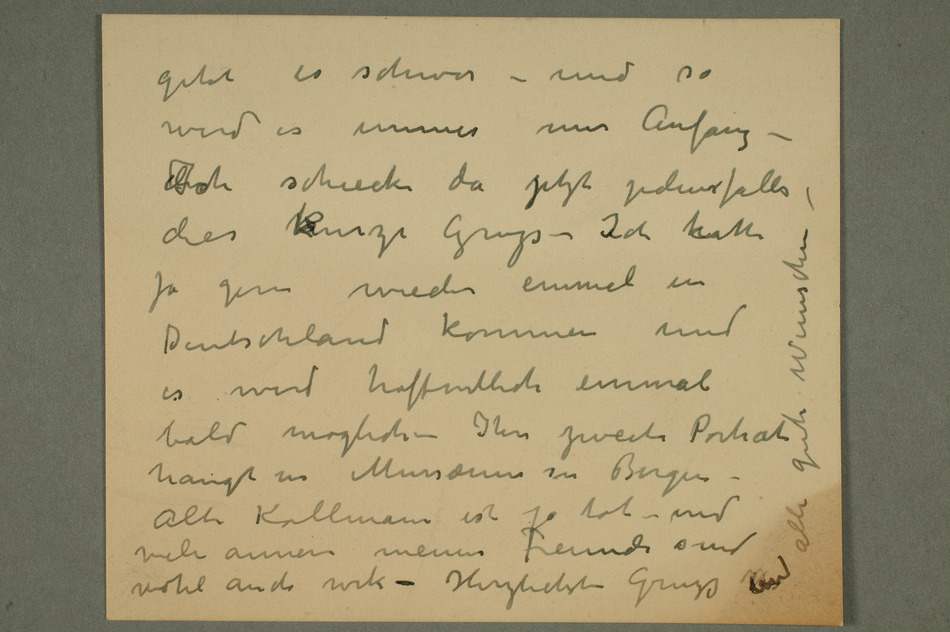 geht es schwer – und so
wird es immer nur Anfang –
Ich schicke da jetzt jedenfalls,
dies Kurze Gruss – Ich hatte
ja gern wieder einmal in
Deutschland kommen und
es wird hoffentlich einmal
bald moglich – Ihr zweite Portræt
hangt in Museum in Bergen –
Alte Kollmann ist ja tot – und
viele annere meiner Freunde sind
wohl auch – Herzlichste Gruss und
alle gute Wunschen